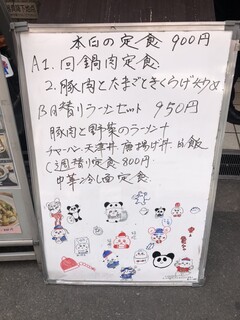 本日の定食 900円
A 1. 回鍋肉定食
2. 豚肉とたまごときくらげ炒め
B 月替りラーメンセット 950円
豚肉と野菜のラーメン+
チャーハン 天津丼 唐揚げ丼 白飯
C 週替り定食 800円
中華冷し面定食